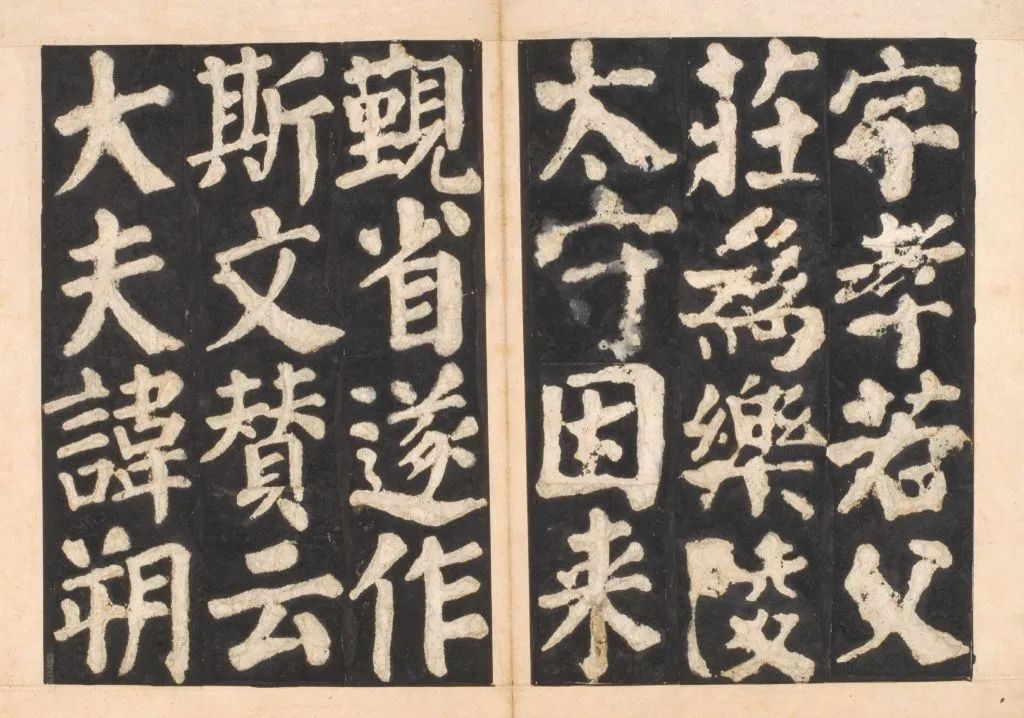 字孝若父
莊為樂陵
太守因来
觐省遂作
斯文賛云
大夫諱朔